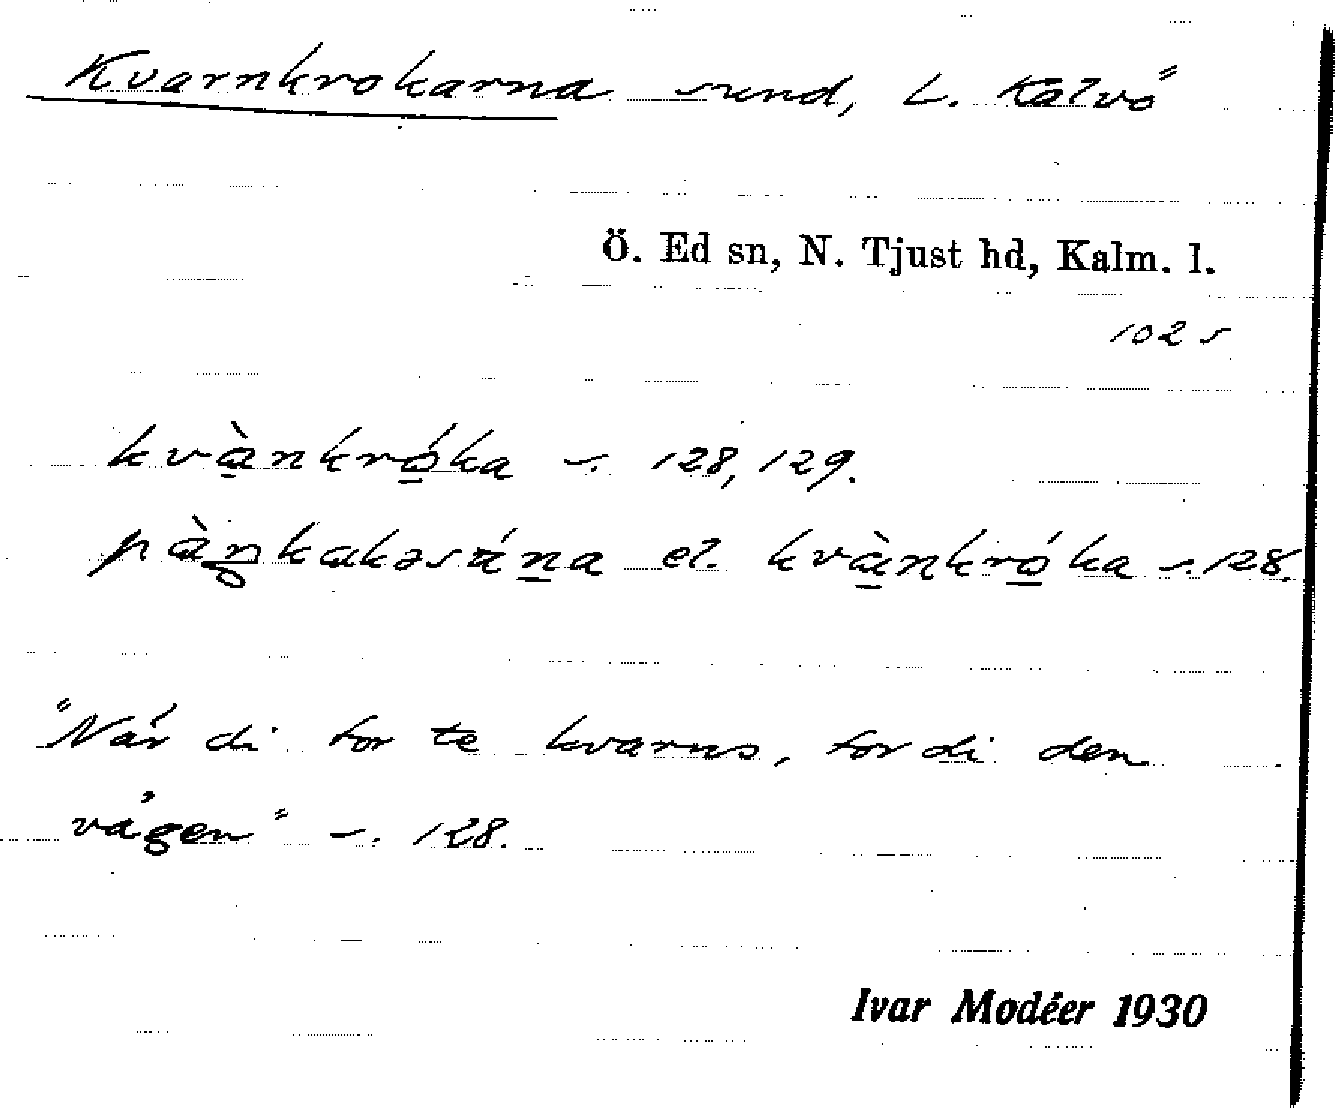 Kvarnkrokarna sund, L. Kalvö
Ö. Ed sn, N. Tjust hd, Kalm. l.
102 s
kvànkróka s. 128, 129.
pàŋkakəsúna el. kvànkróka s. 128.
"När di for te kvarns, for di den
vägen" s. 128.
Ivar Modéer 1930